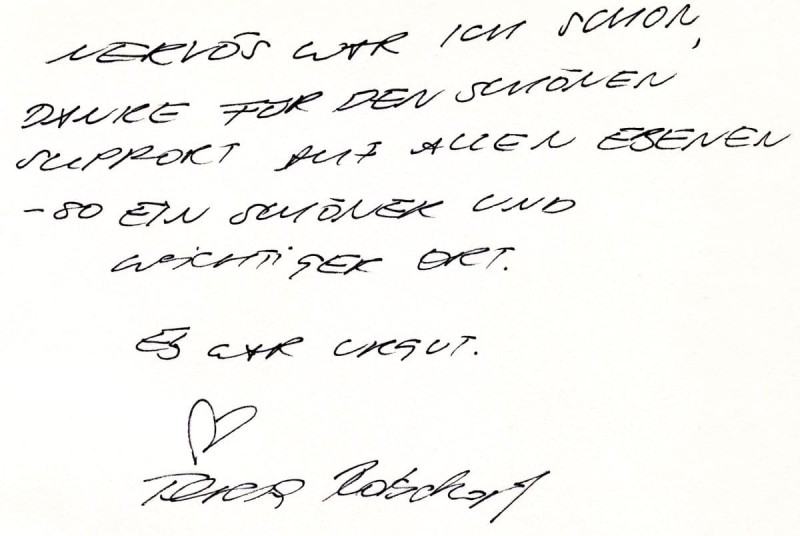 NERVÖS WAR ICH SCHON,
DANKE FÜR DEN SCHÖNEN
SUPPORT AUF ALLEN EBENEN
- SO EIN SCHÖNER UND
WICHTIGER ORT.
ES WAR URGUT.
Teresa Rotschopf